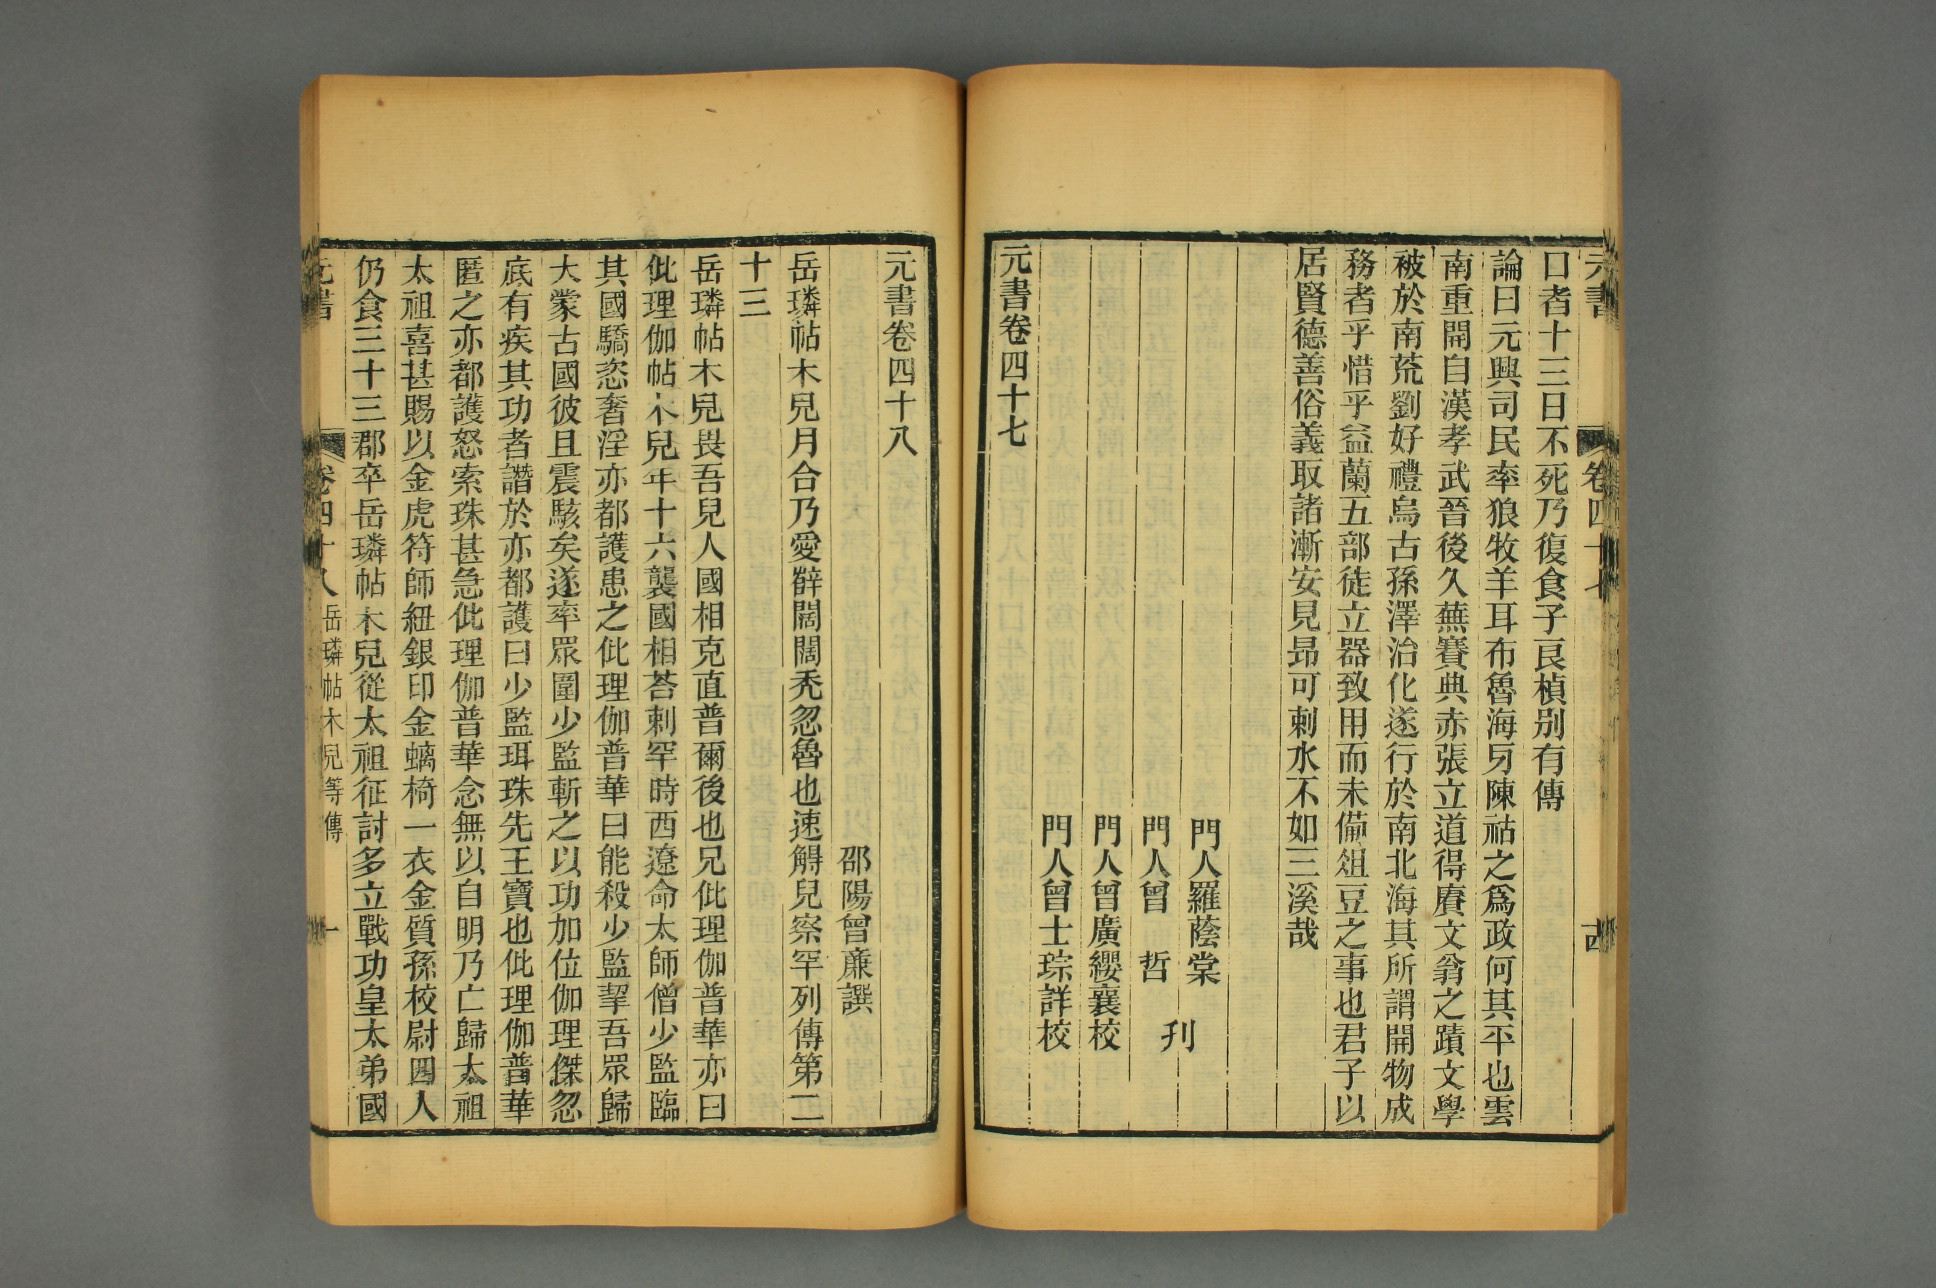 元書
卷四十七
口者十三日不死乃復食子良楨别有傳
論曰元興司民率狼牧羊耳布魯海牙陳祜之爲政何其平也雲
南重開自漢孝武晉後久蕪賽典赤張立道得賡文翁之蹟文學
被於南荒劉好禮烏古孫澤治化遂行於南北海其所謂開物成
務者乎惜乎益蘭五部徒立器致用而未僃俎豆之事也君子以
居賢德善俗義取諸漸安見昻可刺水不如三溪哉
門人羅蔭棠
刋
門人曾　哲
門人曾廣纓襄校
門人曾士琮詳校
元書卷四十七
元書卷四十八
邵陽曾廉譔
岳璘帖木兒月合乃愛薛闊闊禿忽魯也速䚟兒察罕列傳第二
十三
岳璘帖木兒畏吾兒人國相克直普爾後也兄仳理伽普華亦曰
仳理伽帖木兒年十六襲國相荅剌罕時西遼命太師僧少監臨
其國驕恣奢淫亦都護患之仳理伽普華曰能殺少監挈吾眾歸
大蒙古國彼且震駭矣遂率眾圍少監斬之以功加位伽理傑忽
底有疾其功者譖於亦都護曰少監珥珠先王寶也仳理伽普華
匿之亦都護怒索珠甚急仳理伽普華念無以自明乃亡歸太祖
太祖喜甚賜以金虎符師紐銀印金螭椅一衣金質孫校尉四人
仍食二十三郡卒岳璘帖木兒從太祖征討多立戰功皇太弟國
元書
卷四十八
岳璘帖木兒等傳
一